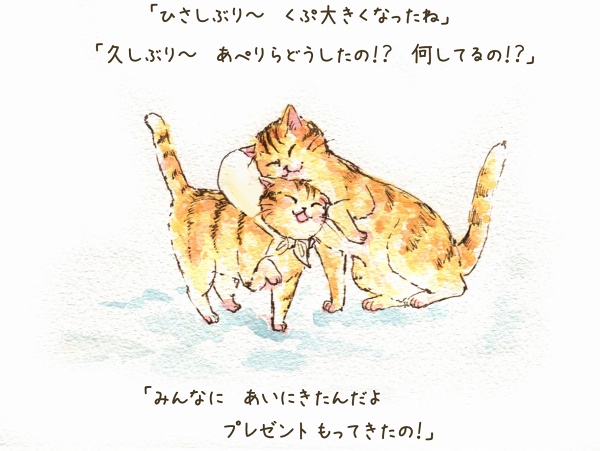 「ひさしぶり～　くぷ大きくなったね」
「久しぶり～　あぺりらどうしたの!?　何してるの!?」
「みんなに　あいにきたんだよ
プレゼント もってきたの!」